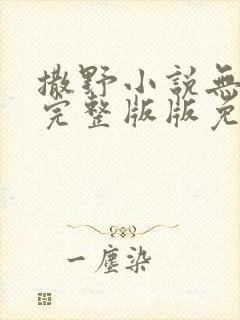 撒野小說無
完整版版免
一塵染